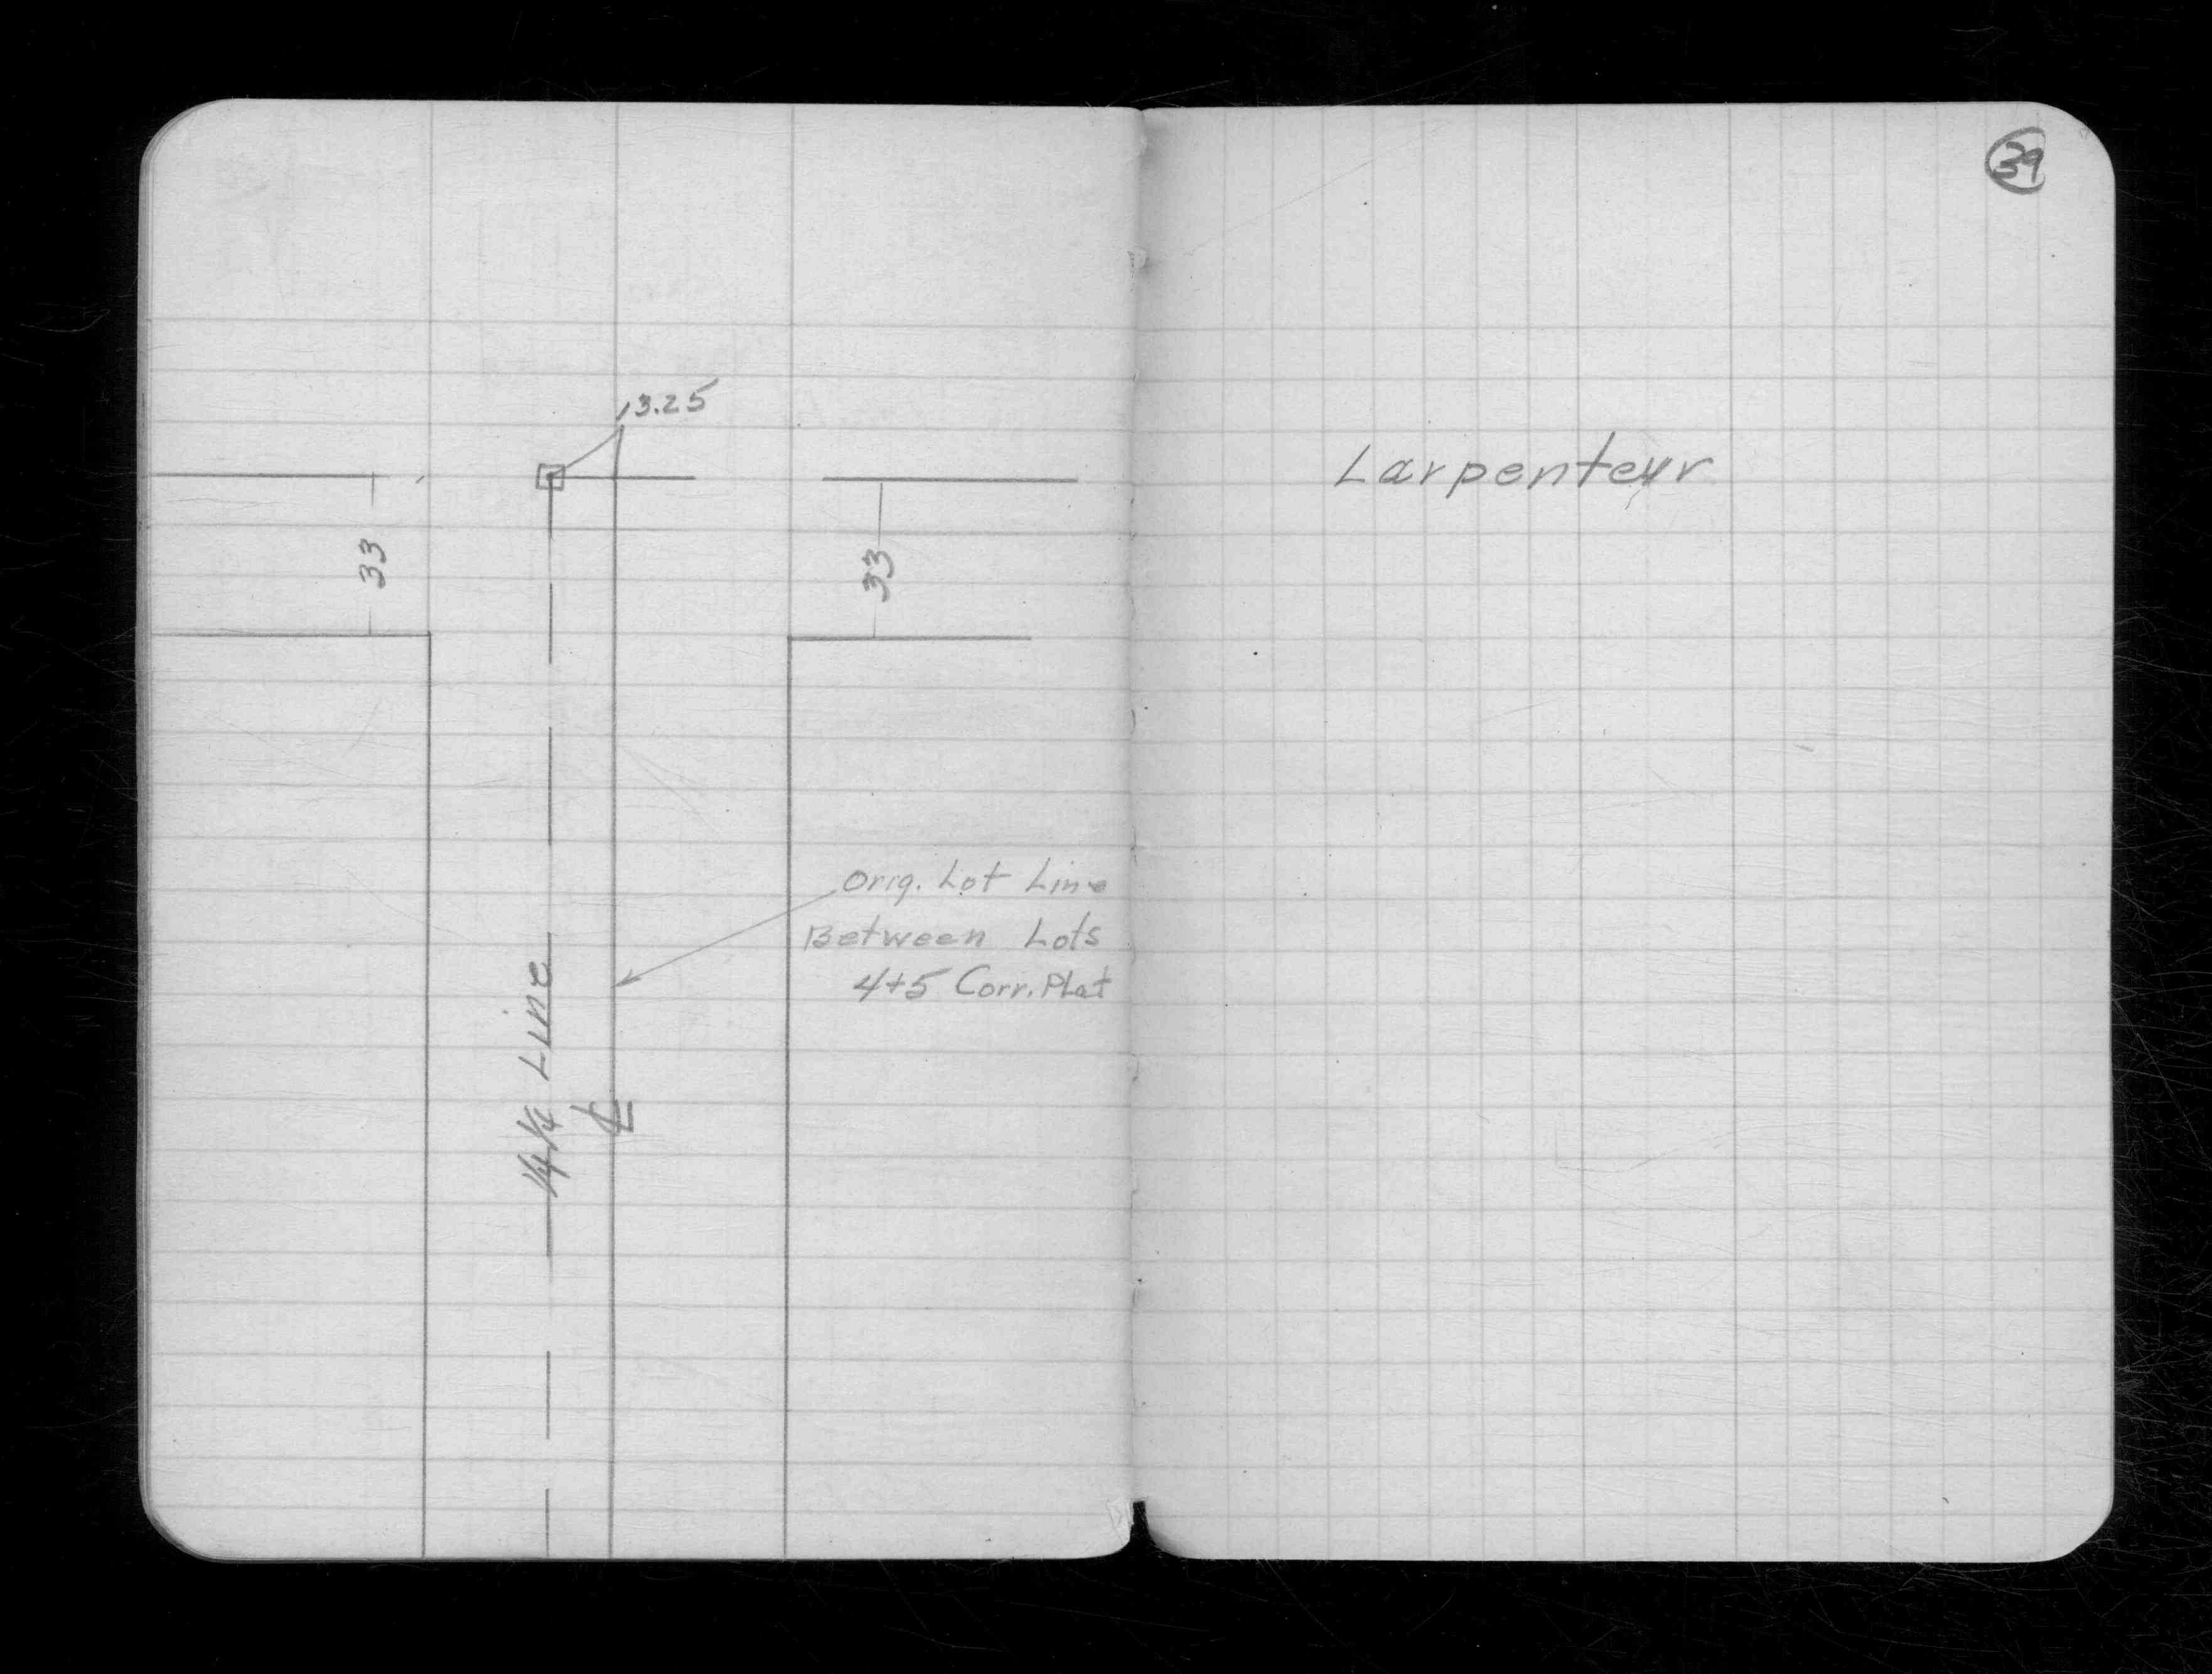 39
13.25
Larpenteur
33
33
Orig. Lot Line
Between Lots
4+5 Corr. Plat
1/4 1/4 Line
℄